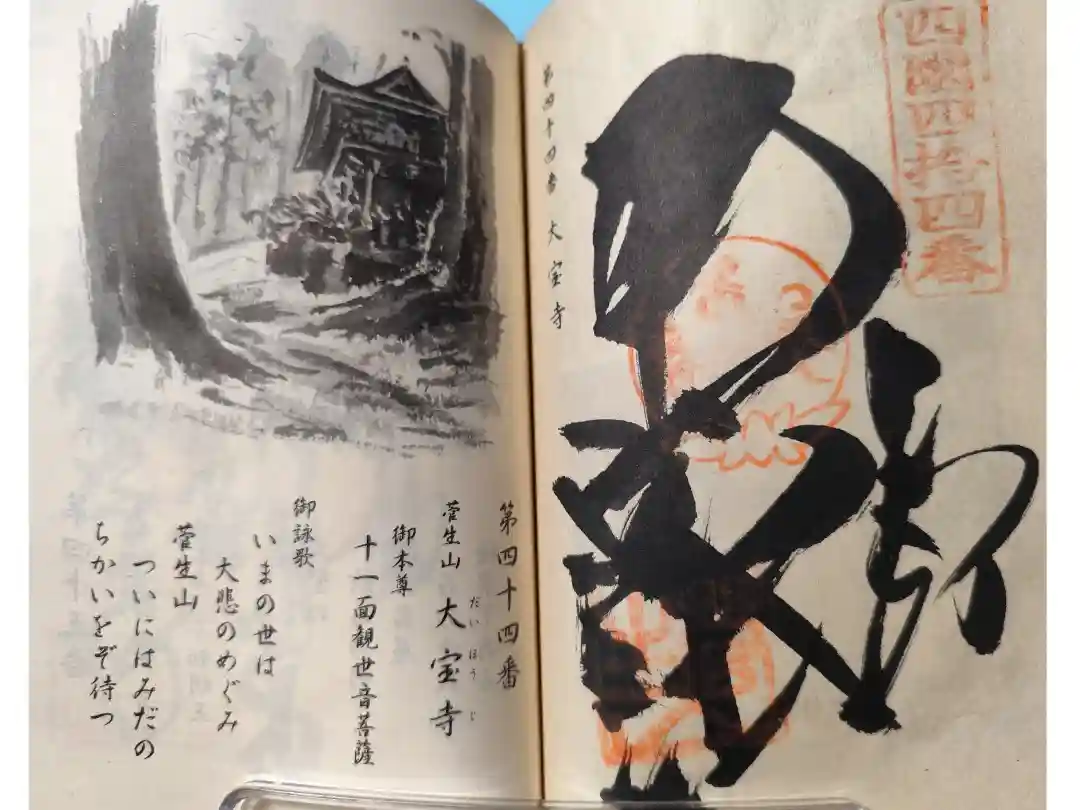 四國四拾四番
第四十四番 大宝寺
第四十四番
菅生山 大宝寺
だいほうじ
御本尊
十一面観世音菩薩
御詠歌
いまの世は
大悲のめぐみ
菅生山
ついにはみだの
ちかいをぞ待つ